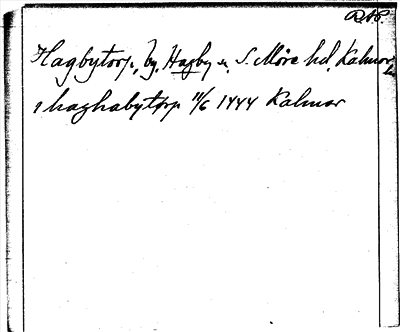 Hagbytorp, by, Hagby sn. S. Möre hd. Kalmar
i haghabytorp 11/6 1444 Kalmar